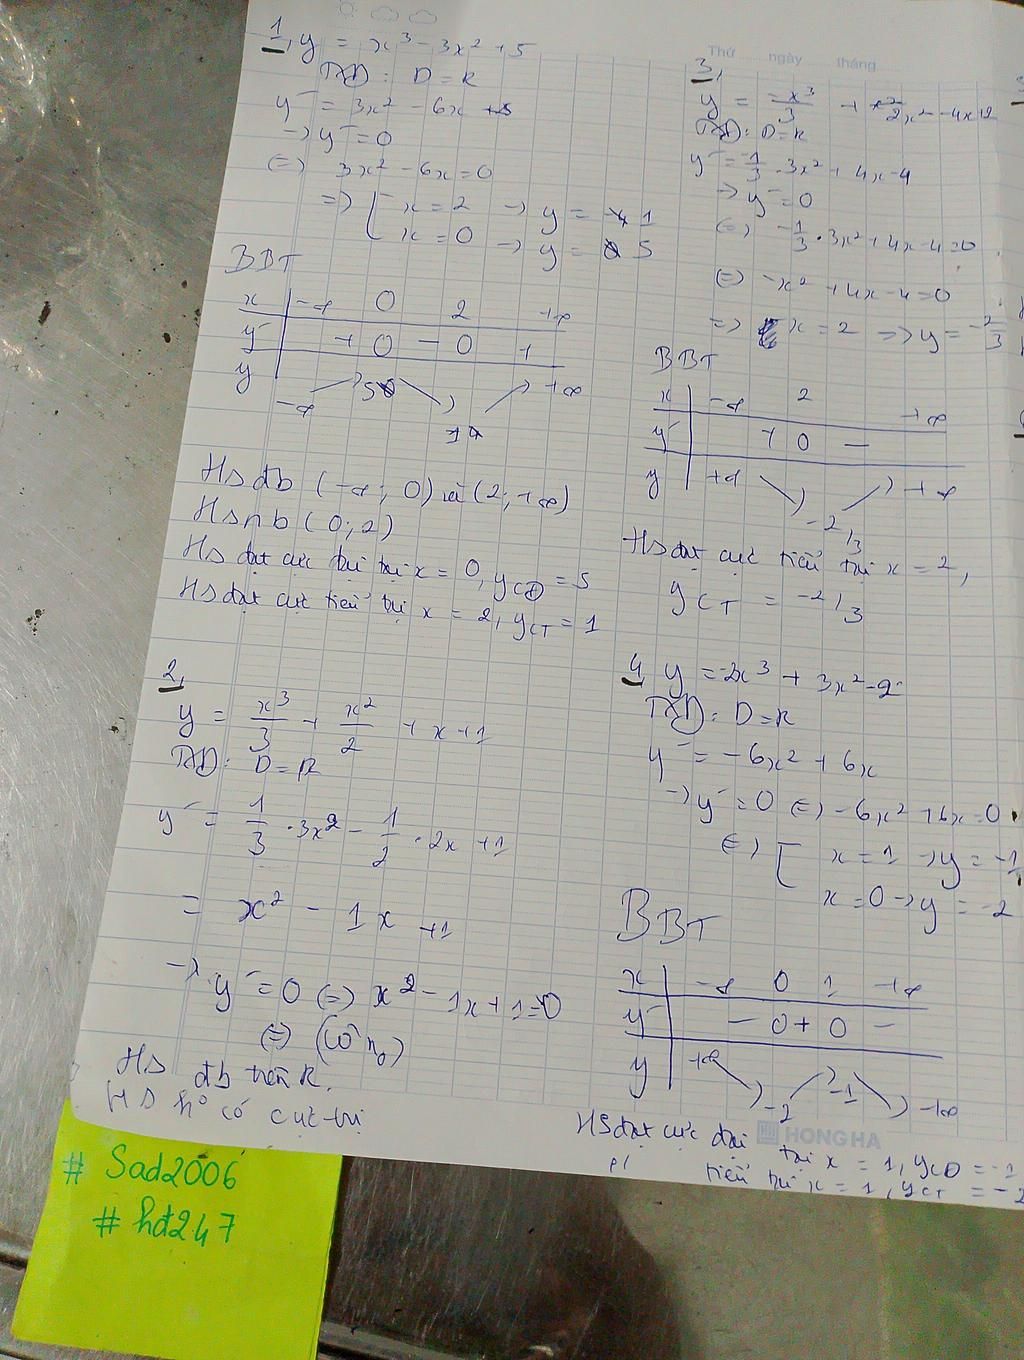 1, y = x³ - 3x² + 5
TXĐ: D = R
y' = 3x² - 6x
→ y' = 0
(=) 3x² - 6x = 0
=> [ x = 2 → y = 1
x = 0 → y = 5
BBT
x | -∞ 0 2 +∞
y' | + 0 - 0 +
y | -∞ 5 1 +∞
HS đb (-∞; 0) và (2; +∞)
HS nb (0; 2)
HS đạt cực đại tại x = 0, yCĐ = 5
HS đạt cực tiểu tại x = 2, yCT = 1
2,
y = x³/3 + x²/2 + x + 1
TXĐ: D = R
y' = 1/3 . 3x² - 1/2 . 2x + 1
= x² - 1x + 1
→ y' = 0 (=) x² - 1x + 1 = 0
(=) (Vô n0)
HS đb trên R.
HS k° có cực trị
Thứ ngày tháng
3,
y = -x³/3 + 2x² - 4x + 2
TXĐ: D = R
y' = -1/3 . 3x² + 4x - 4
→ y' = 0
(=) -1/3 . 3x² + 4x - 4 = 0
(=) -x² + 4x - 4 = 0
=> x = 2 => y = -2/3
BBT
x | -∞ 2 +∞
y' | + 0 -
y | +∞ -2/3 +∞
HS đạt cực tiểu tại x = 2,
yCT = -2/3
4, y = -2x³ + 3x² - 2
TXĐ: D = R
y' = -6x² + 6x
→ y' = 0 (=) -6x² + 6x = 0
(=) [ x = 1 → y = -1
x = 0 → y = -2
BBT
x | -∞ 0 1 +∞
y' | - 0 + 0 -
y | +∞ -2 -1 -∞
HS đạt cực đại tại x = 1, yCĐ = -1
tiểu tại x = 1, yCT = -2
HONG HA
# Sad2006
# hđ247